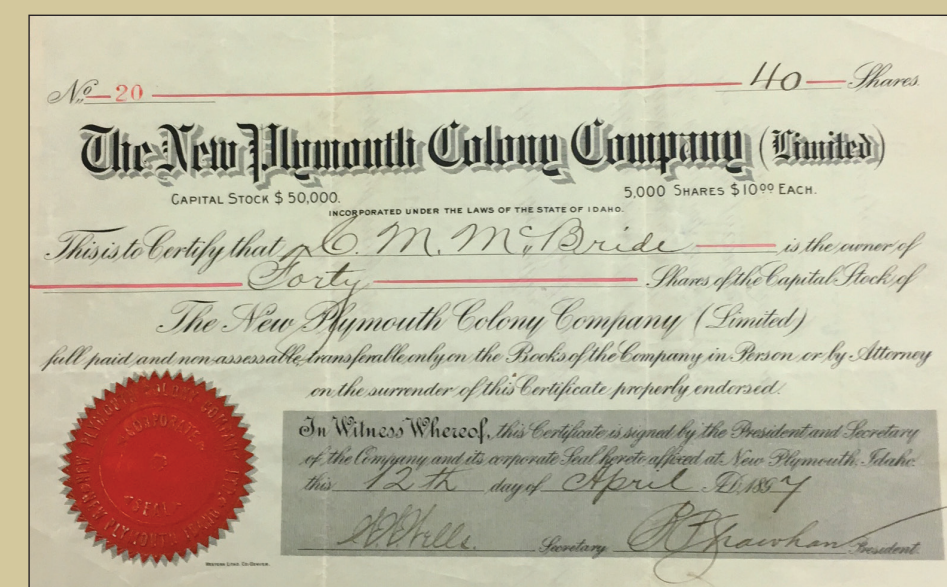 No. 20 40 Shares
The New Plymouth Colony Company (Limited)
CAPITAL STOCK $50,000. 5,000 SHARES $10.00 EACH.
INCORPORATED UNDER THE LAWS OF THE STATE OF IDAHO.
This is to Certify that C. M. McBride is the owner of
Forty Shares of the Capital Stock of
The New Plymouth Colony Company (Limited)
full paid and non-assessable, transferable only on the Books of the Company in Person or by Attorney
on the surrender of this Certificate properly endorsed.
In Witness Whereof, this Certificate is signed by the President and Secretary
of the Company and its corporate Seal hereto affixed at New Plymouth, Idaho.
this 12th day of April A.D. 1897
Wells. Secretary President
CORPORATE
SEAL
WESTERN LITHO. CO. DENVER.